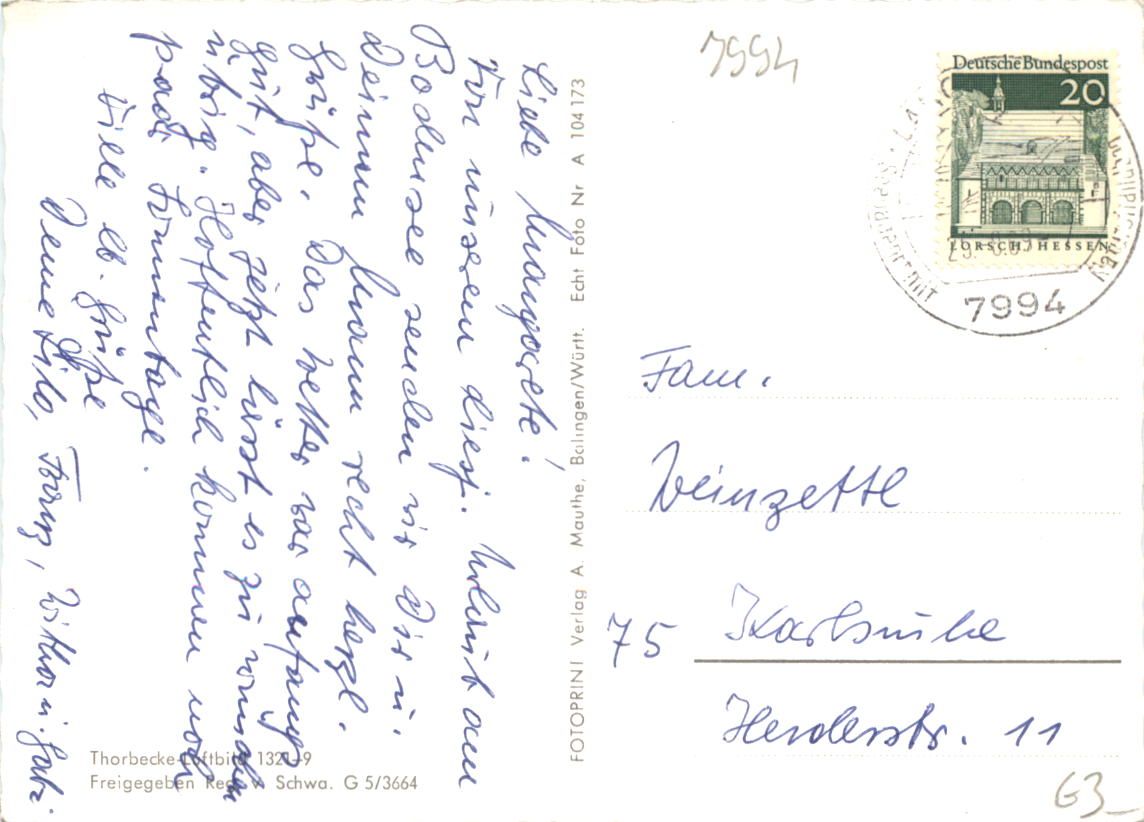 Liebe Margarete!
Von unserem diesj. Urlaub am
Bodensee senden wir Dir u.
Deinem Mann recht herzl.
Grüße. Das Wetter war anfangs
gut, aber jetzt lässt es zu wünschen
übrig. Hoffentlich kommen noch
paar Sonnentage.
Viele lb. Grüße
Deine Lilo, Franz,
Thorbecke-Luftbild 1321-9
Freigegeben Reg. v. Schwa. G 5/3664
FOTOPRINT Verlag A. Mauthe, Balingen/Württ. Echt Foto Nr A 104173
7994
Deutsche Bundespost
20
LORSCH/HESSEN
7994
Fam.
Weinzettl
75 Karlsruhe
Herderstr. 11
63_